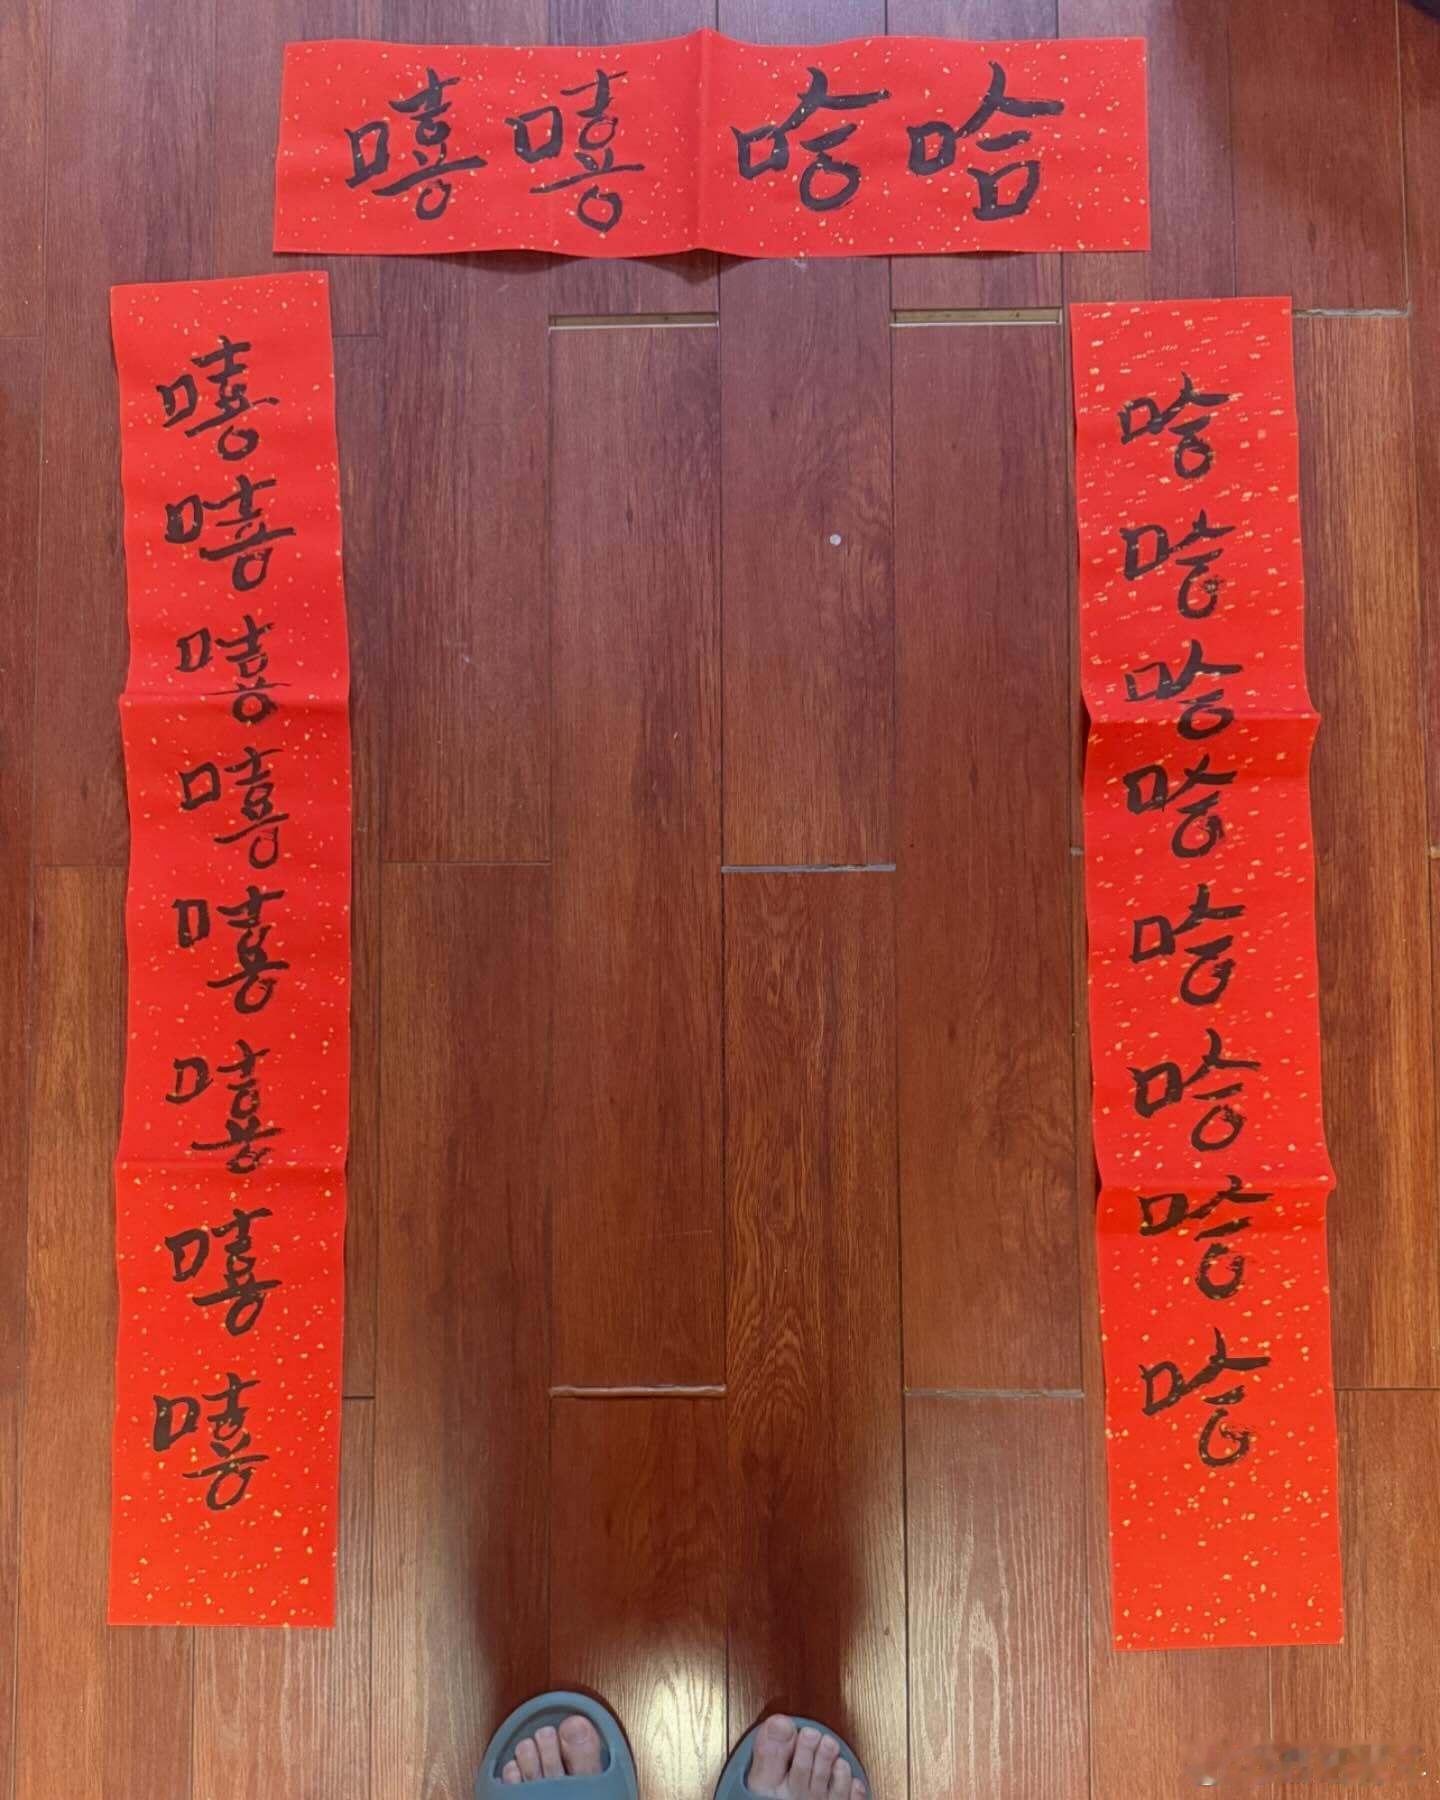 嘻嘻哈哈
哈哈哈哈哈哈哈哈
嘻嘻嘻嘻嘻嘻嘻嘻